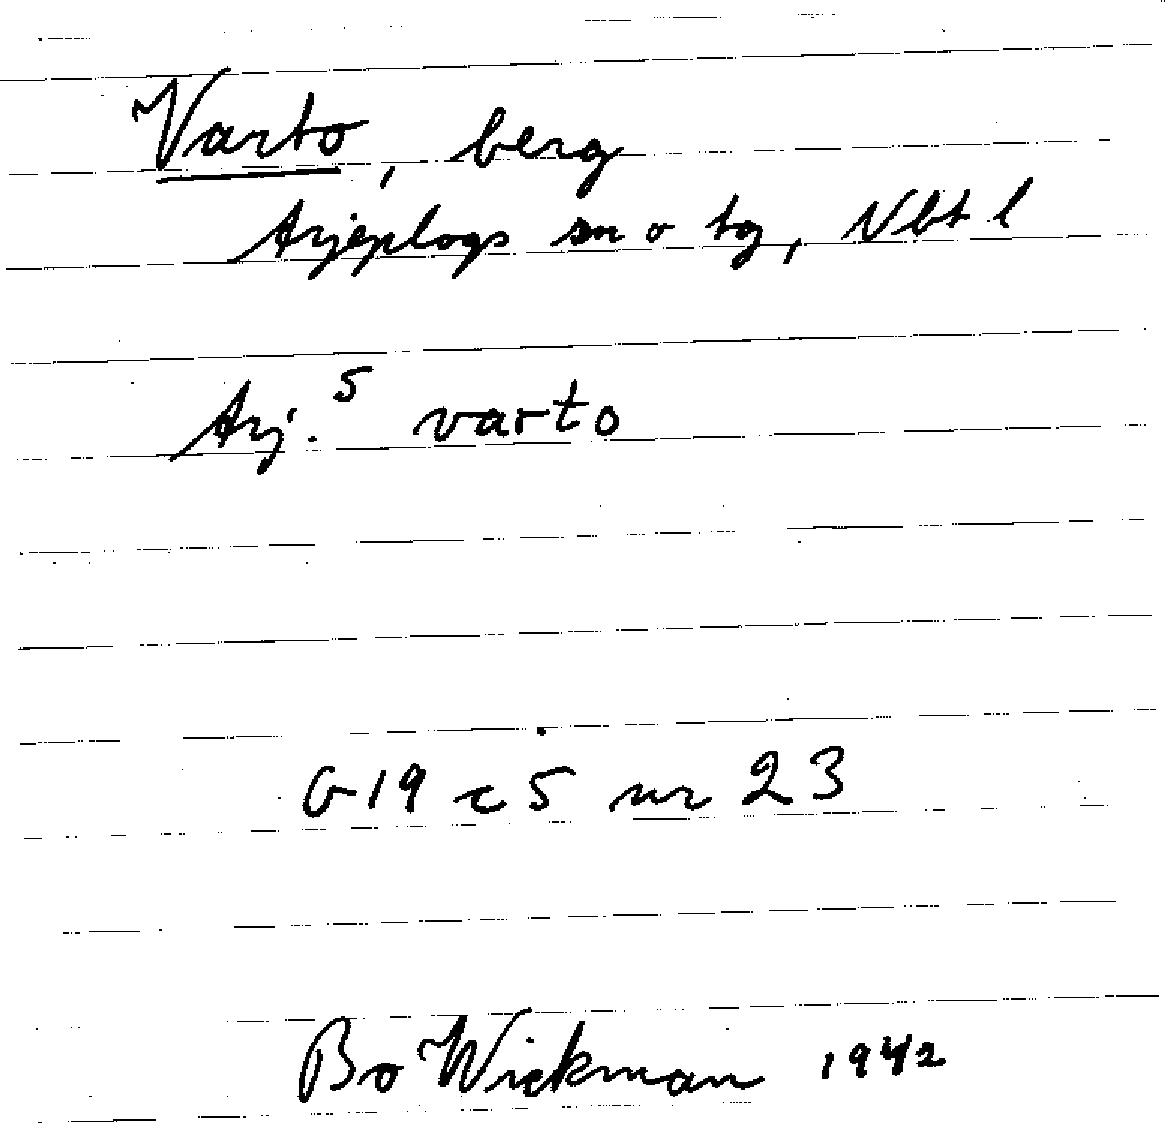 Varto, berg
Arjeplogs sn o tg, Nbt l
Arj.⁵ varto
G 19 c 5 nr 23
Bo Wickman 1942